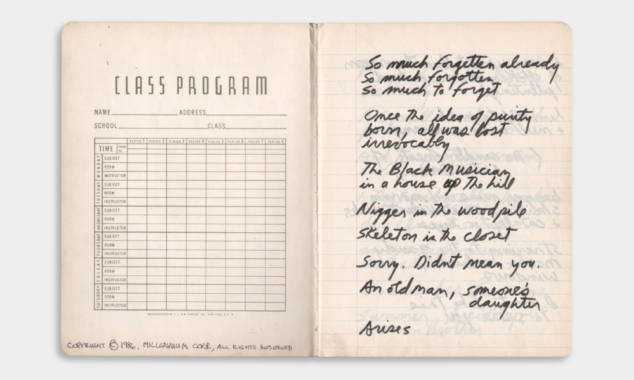 CLASS PROGRAM
NAME ADDRESS
SCHOOL CLASS
TIME
SUBJECT
ROOM
INSTRUCTOR
SUBJECT
ROOM
INSTRUCTOR
SUBJECT
ROOM
INSTRUCTOR
SUBJECT
ROOM
INSTRUCTOR
SUBJECT
ROOM
INSTRUCTOR
SUBJECT
ROOM
INSTRUCTOR
COPYRIGHT © 1986, ALL RIGHTS RESERVED
So much forgotten already
So much forgotten
So much to forget
Once the idea of purity
born, all was lost
irrevocably
The Black Musician
in a house up the hill
Nigger in the woodpile
Skeleton in the closet
Sorry. Didn't mean you.
An old man, someone's
daughter
Arises